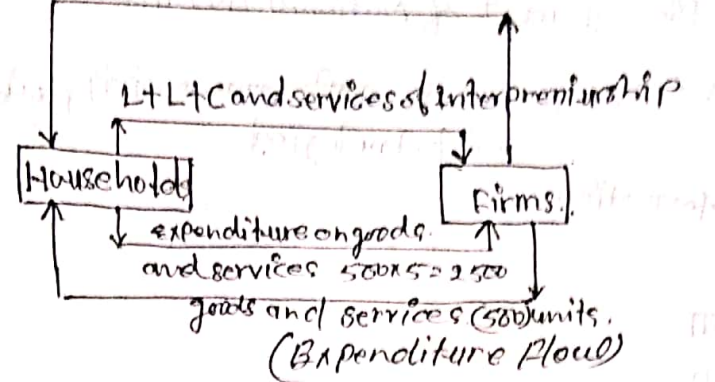 L+L+C and services of interpreniurship
Household
Firms.
expenditure on goods.
and services 500x5=2500
goods and services (500) units.
(Expenditure Flow)